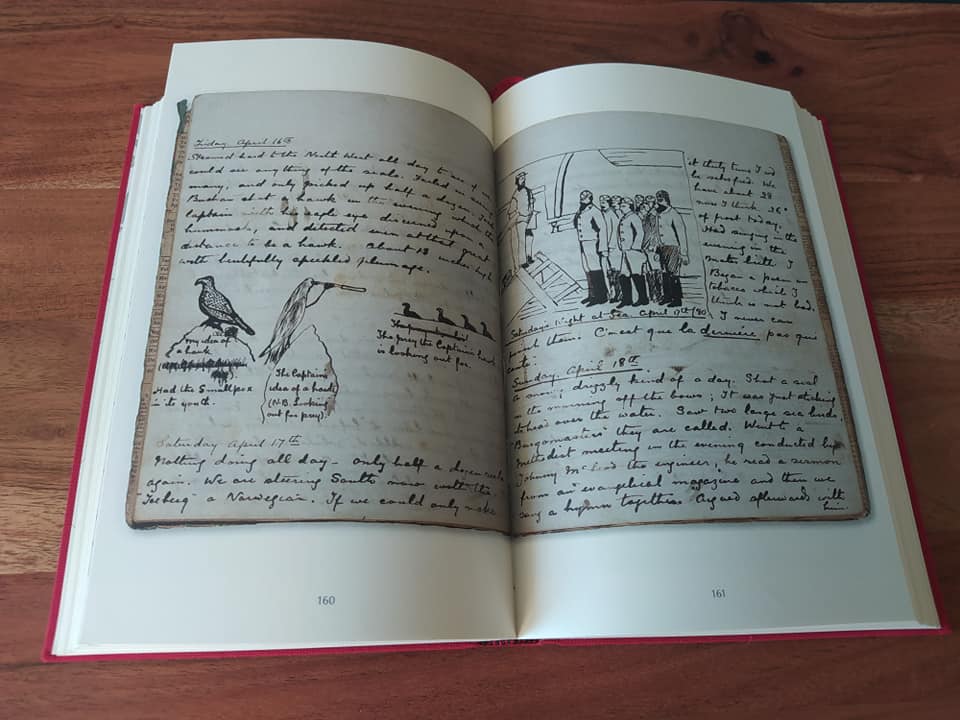 Friday April 16th
Steamed hard to the North West all day to see if we
could see anything of the seals. Failed in
many, and only picked up half a dozen.
Buchan shot a hawk in the evening which the
Captain with his eagle eye discerned upon a
hummock, and detected even at that great
distance to be a hawk. About 18 inches high
with beautifully speckled plumage.
my idea of
a hawk
Had the Smallpox
in its youth.
The Captain's
idea of a hawk
(N.B. Looking
out for prey)
The prey the Captain's hawk
is looking out for.
Saturday April 17th
Nothing doing all day – only half a dozen seals
again. We are steering South now with the
"Iceberg" a Norwegian. If we could only make
160
it thirty tons I'd
be satisfied. We
have about 28
now I think. 26°
of frost today.
Had singing in the
evening in the
mate's birth. I
Began a poem on
tobacco which I
think is not bad.
I never can
Saturday's Night at Sea. April 17th /80
finish them. C'est que la dernière pas que
coute.
Sunday, April 18th
a drizzly kind of a day. Shot a seal
in the morning off the bows; It was just sticking
its head over the water. Saw two large sea birds
"Burgomasters" they are called. Went to a
Methodist meeting in the evening conducted by
Johnny McLeod the engineer; he read a sermon
from an evangelical magazine and then we
sang a hymn together. Argued afterwards with
him.
161